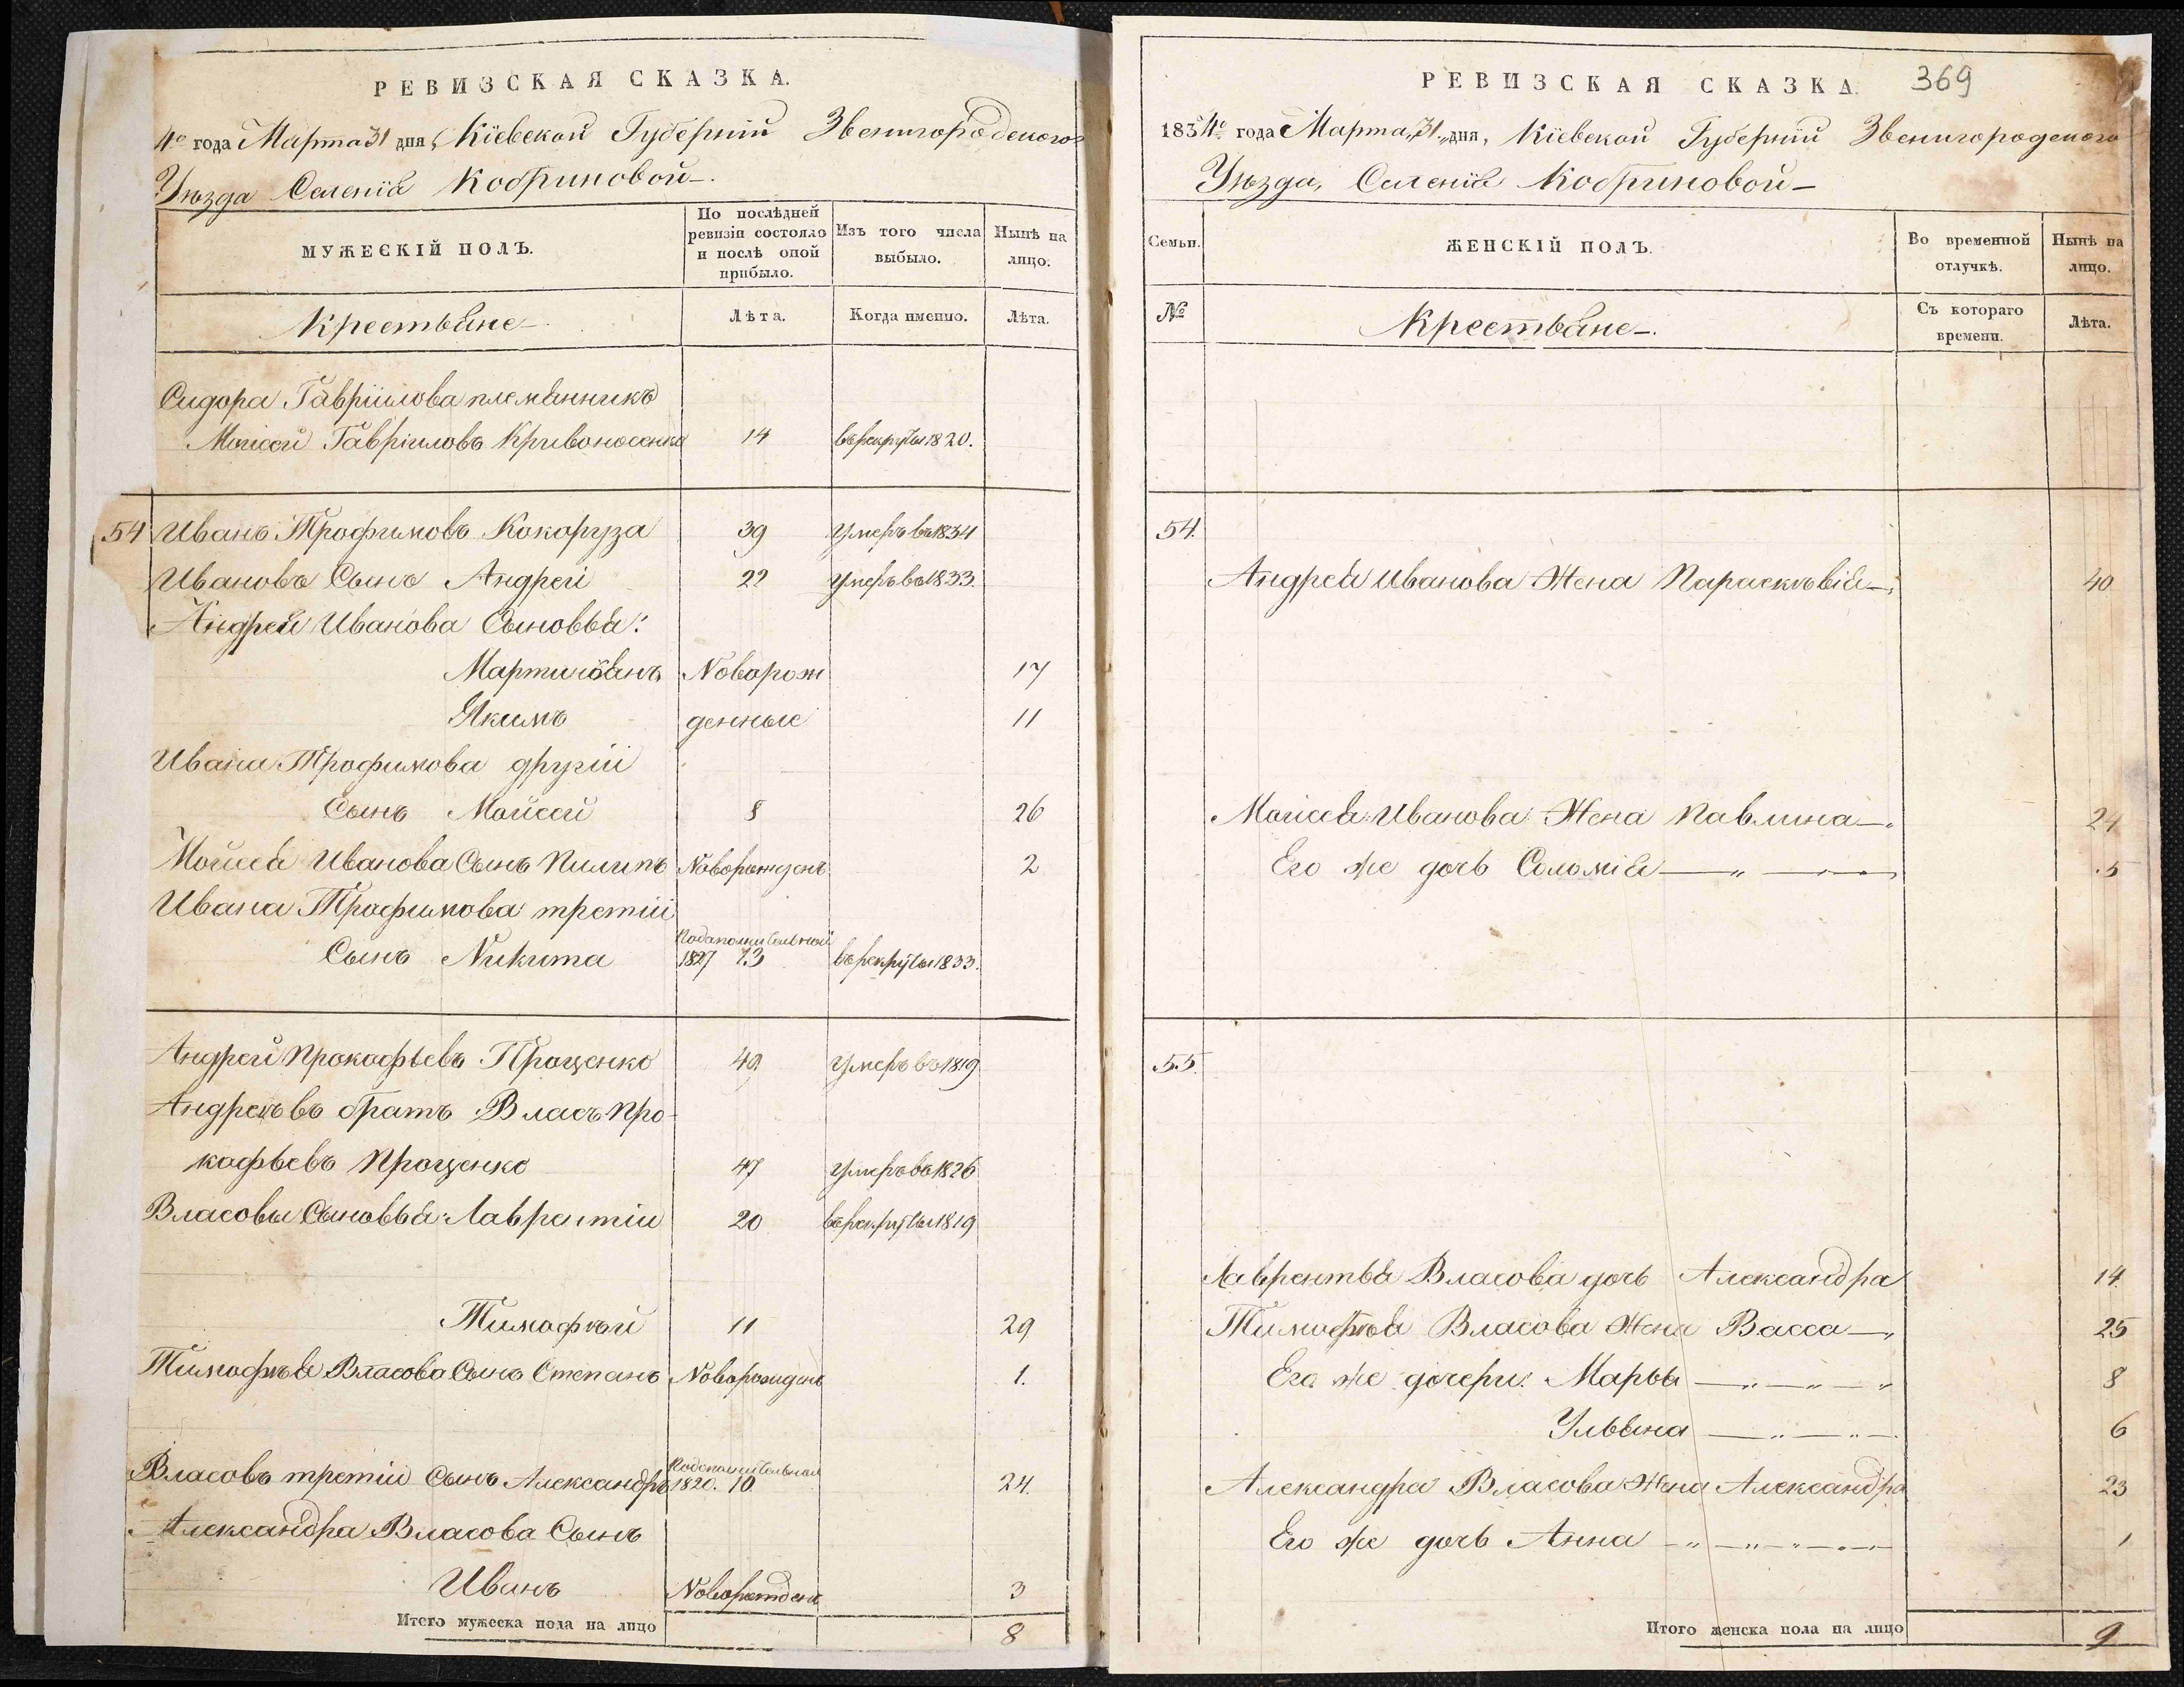 РЕВИЗСКАЯ СКАЗКА.
4го года Марта 31 дня, Кіевской Губерніи Звенигородского
Уѣзда Селенія Кобриновой
МУЖЕСКІЙ ПОЛЪ.
По послѣдней ревизіи состояло и послѣ оной прибыло.
Изъ того числа выбыло.
Нынѣ на лицо.
Крестьяне
Лѣта.
Когда именно.
Лѣта.
Сидора Гавріилова племянникъ
Моисей Гавріиловъ Кривоносенко 14 въ рекруты 1820.
54 Иванъ Трофимовъ Кокоруза 39 Умеръ въ 1834
Ивановъ Сынъ Андрей 22 Умеръ въ 1833.
Андрея Иванова Сыновья:
Мартинианъ Новорож 17
Якимъ денные 11
Ивана Трофимова другій
Сынъ Мойсей 8 26
Мойсея Иванова Сынъ Пилипъ Новорожденъ 2
Ивана Трофимова третій
Сынъ Никита 1827 13 въ рекруты 1833.
Андрей Прокофьевъ Проценко 49 Умеръ въ 1819
Андреевъ братъ Власъ Про-
кофьевъ Проценко 47 Умеръ въ 1826
Власовы Сыновья: Лаврентій 20 въ рекруты 1819
Тимофѣй 11 29
Тимофѣя Власова Сынъ Степанъ Новорожденъ 1.
Власовъ третій Сынъ Александръ 1820. 10 24.
Александра Власова Сынъ
Иванъ Новорожденъ 3
Итого мужеска пола на лицо 8
РЕВИЗСКАЯ СКАЗКА. 369
1834го года Марта „31„ дня, Кіевской Губерніи Звенигородского
Уѣзда, Селенія Кобриновой
Семьи.
ЖЕНСКІЙ ПОЛЪ.
Во временной отлучкѣ.
Нынѣ на лицо.
№
Крестьяне
Съ котораго времени.
Лѣта.
54.
Андрея Иванова Жена Параскѣвія 40
Моисея Иванова Жена Павлина 24
Его же дочь Соломія 5
55.
Лаврентья Власова дочь Александра 14.
Тимофѣя Власова Жена Васса 25
Его же дочери: Марья 8
Ульяна 6
Александра Власова Жена Александра 23
Его же дочь Анна 1
Итого женска пола на лицо 9